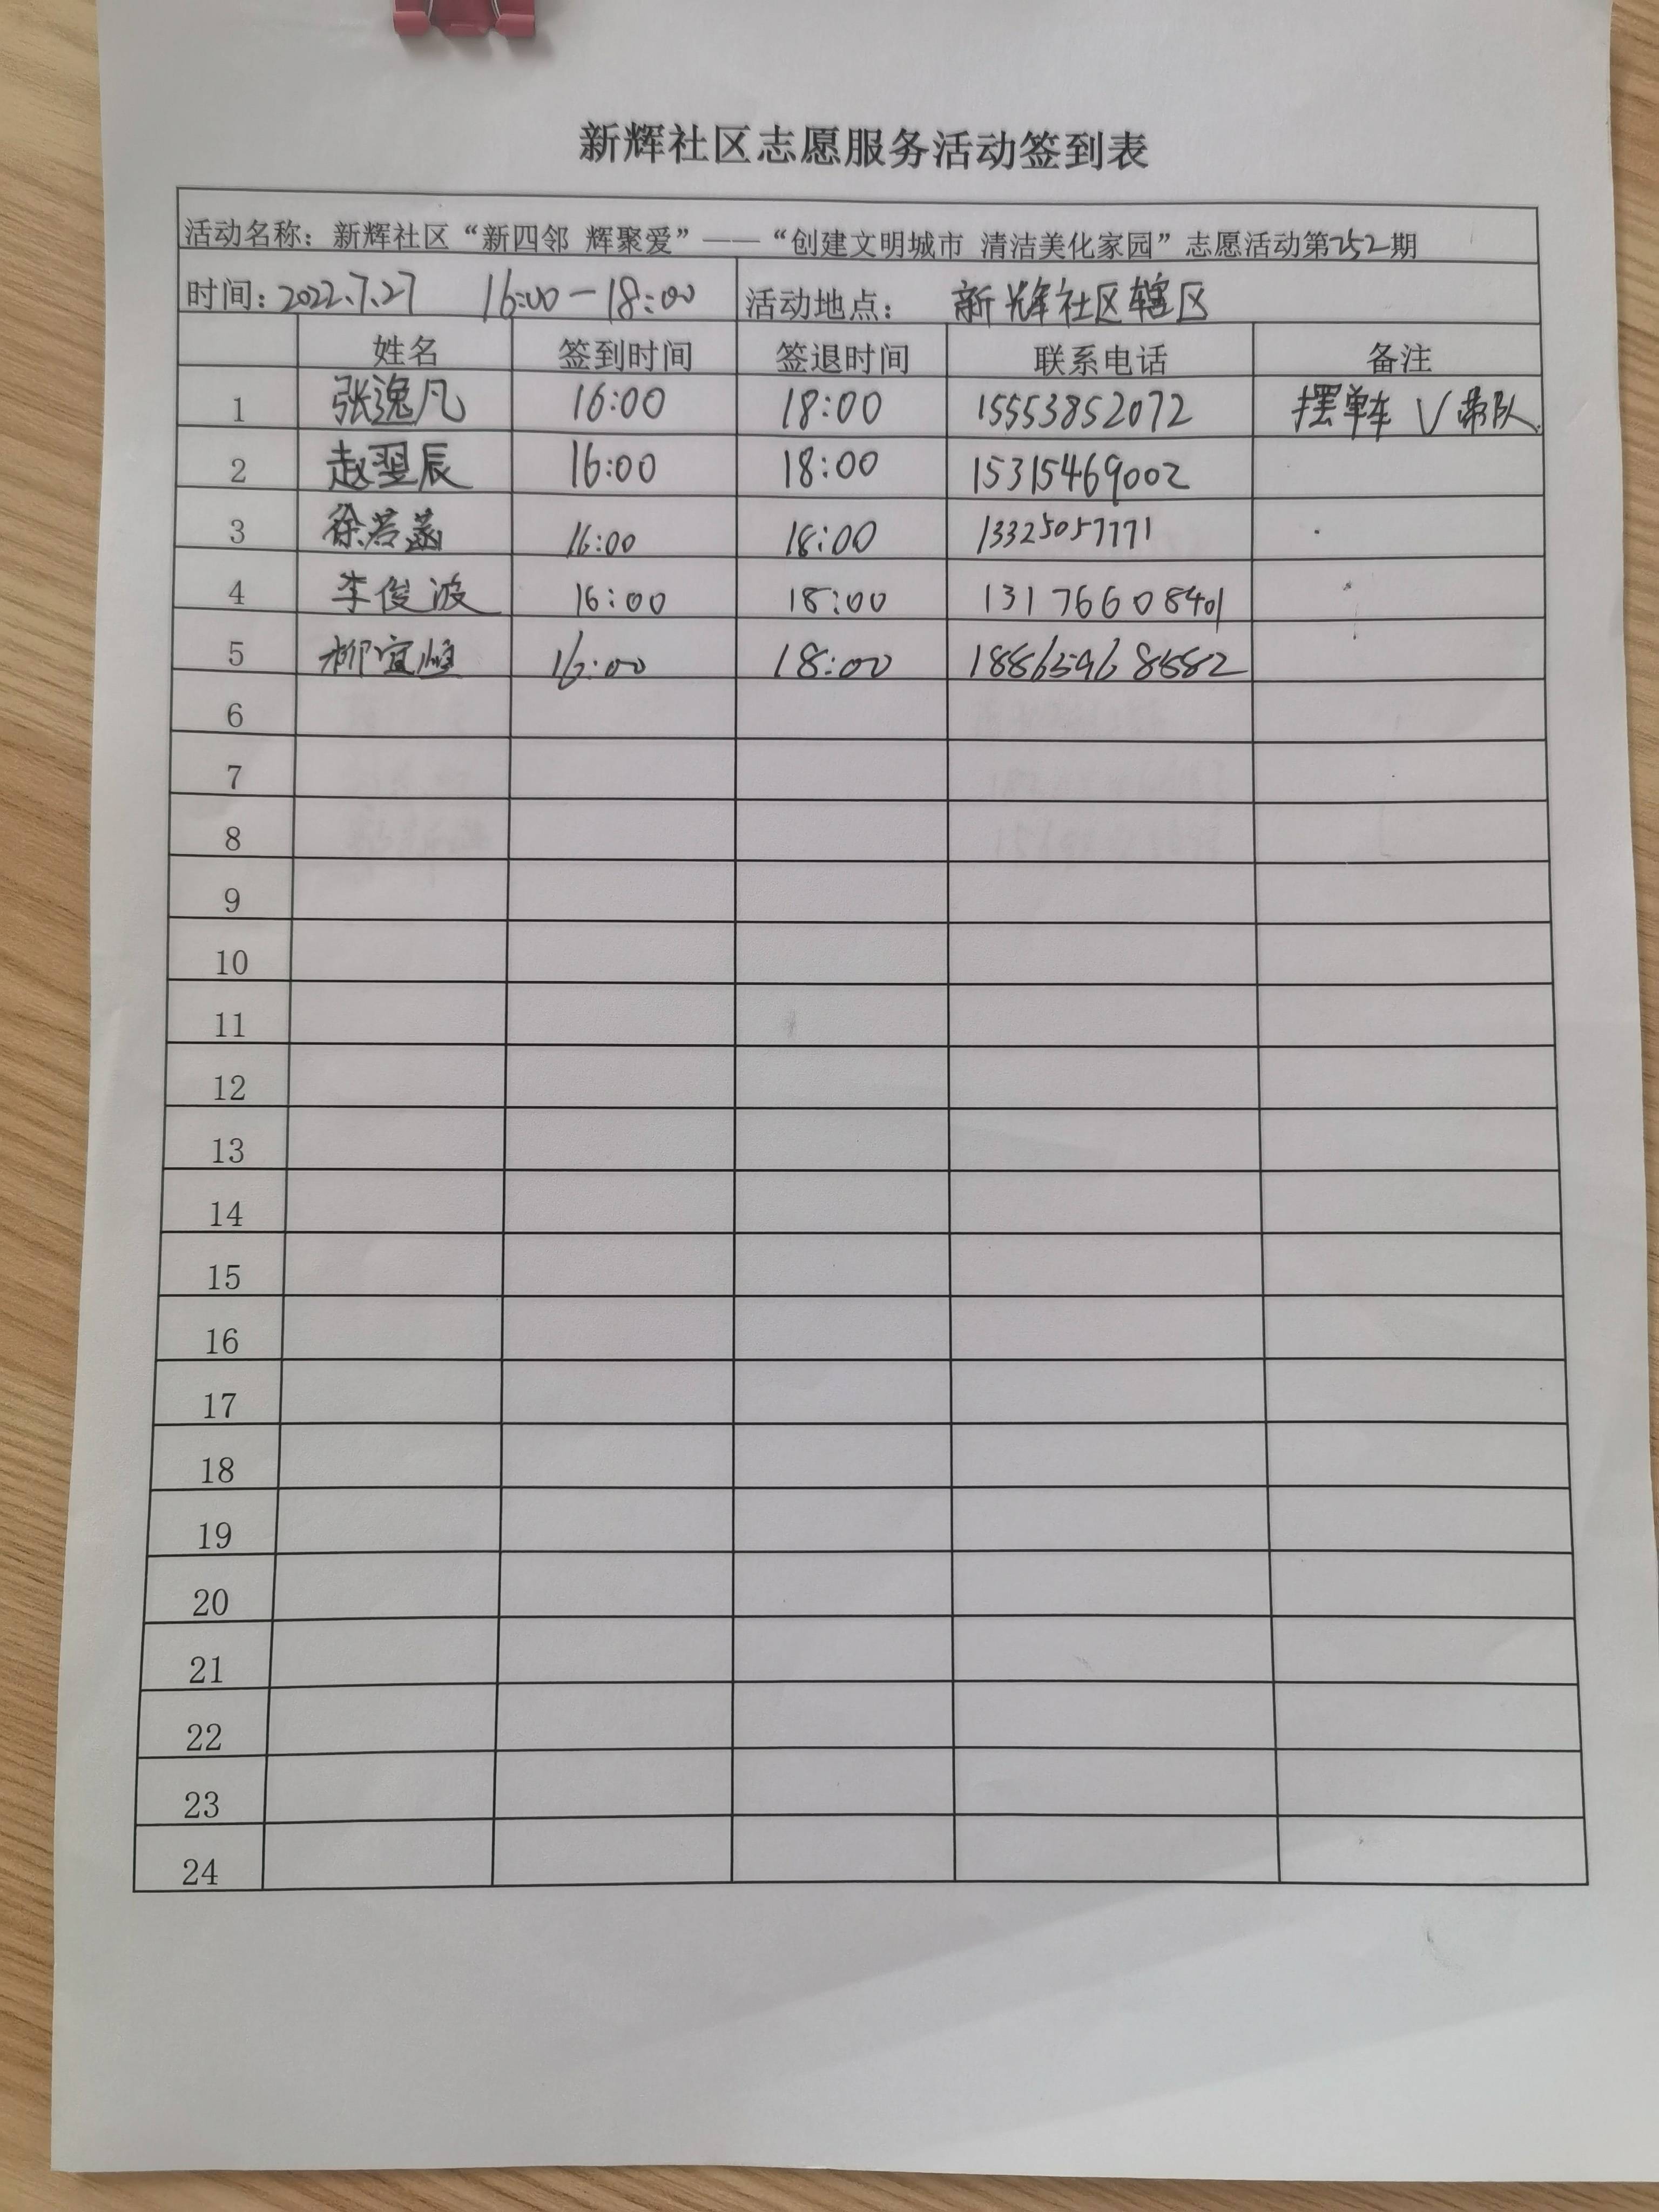 新辉社区志愿服务活动签到表
活动名称：新辉社区“新四邻 辉聚爱”——“创建文明城市 清洁美化家园”志愿活动第252期
时间：2022.7.27 16:00-18:00 活动地点： 新辉社区辖区
姓名 签到时间 签退时间 联系电话 备注
1 张逸凡 16:00 18:00 15553852072 摆单车 √带队
2 赵翌辰 16:00 18:00 15315469002
3 徐若菡 16:00 18:00 13325057771
4 李俊波 16:00 18:00 13176608401
5 柳宜恒 16:00 18:00
6
7
8
9
10
11
12
13
14
15
16
17
18
19
20
21
22
23
24